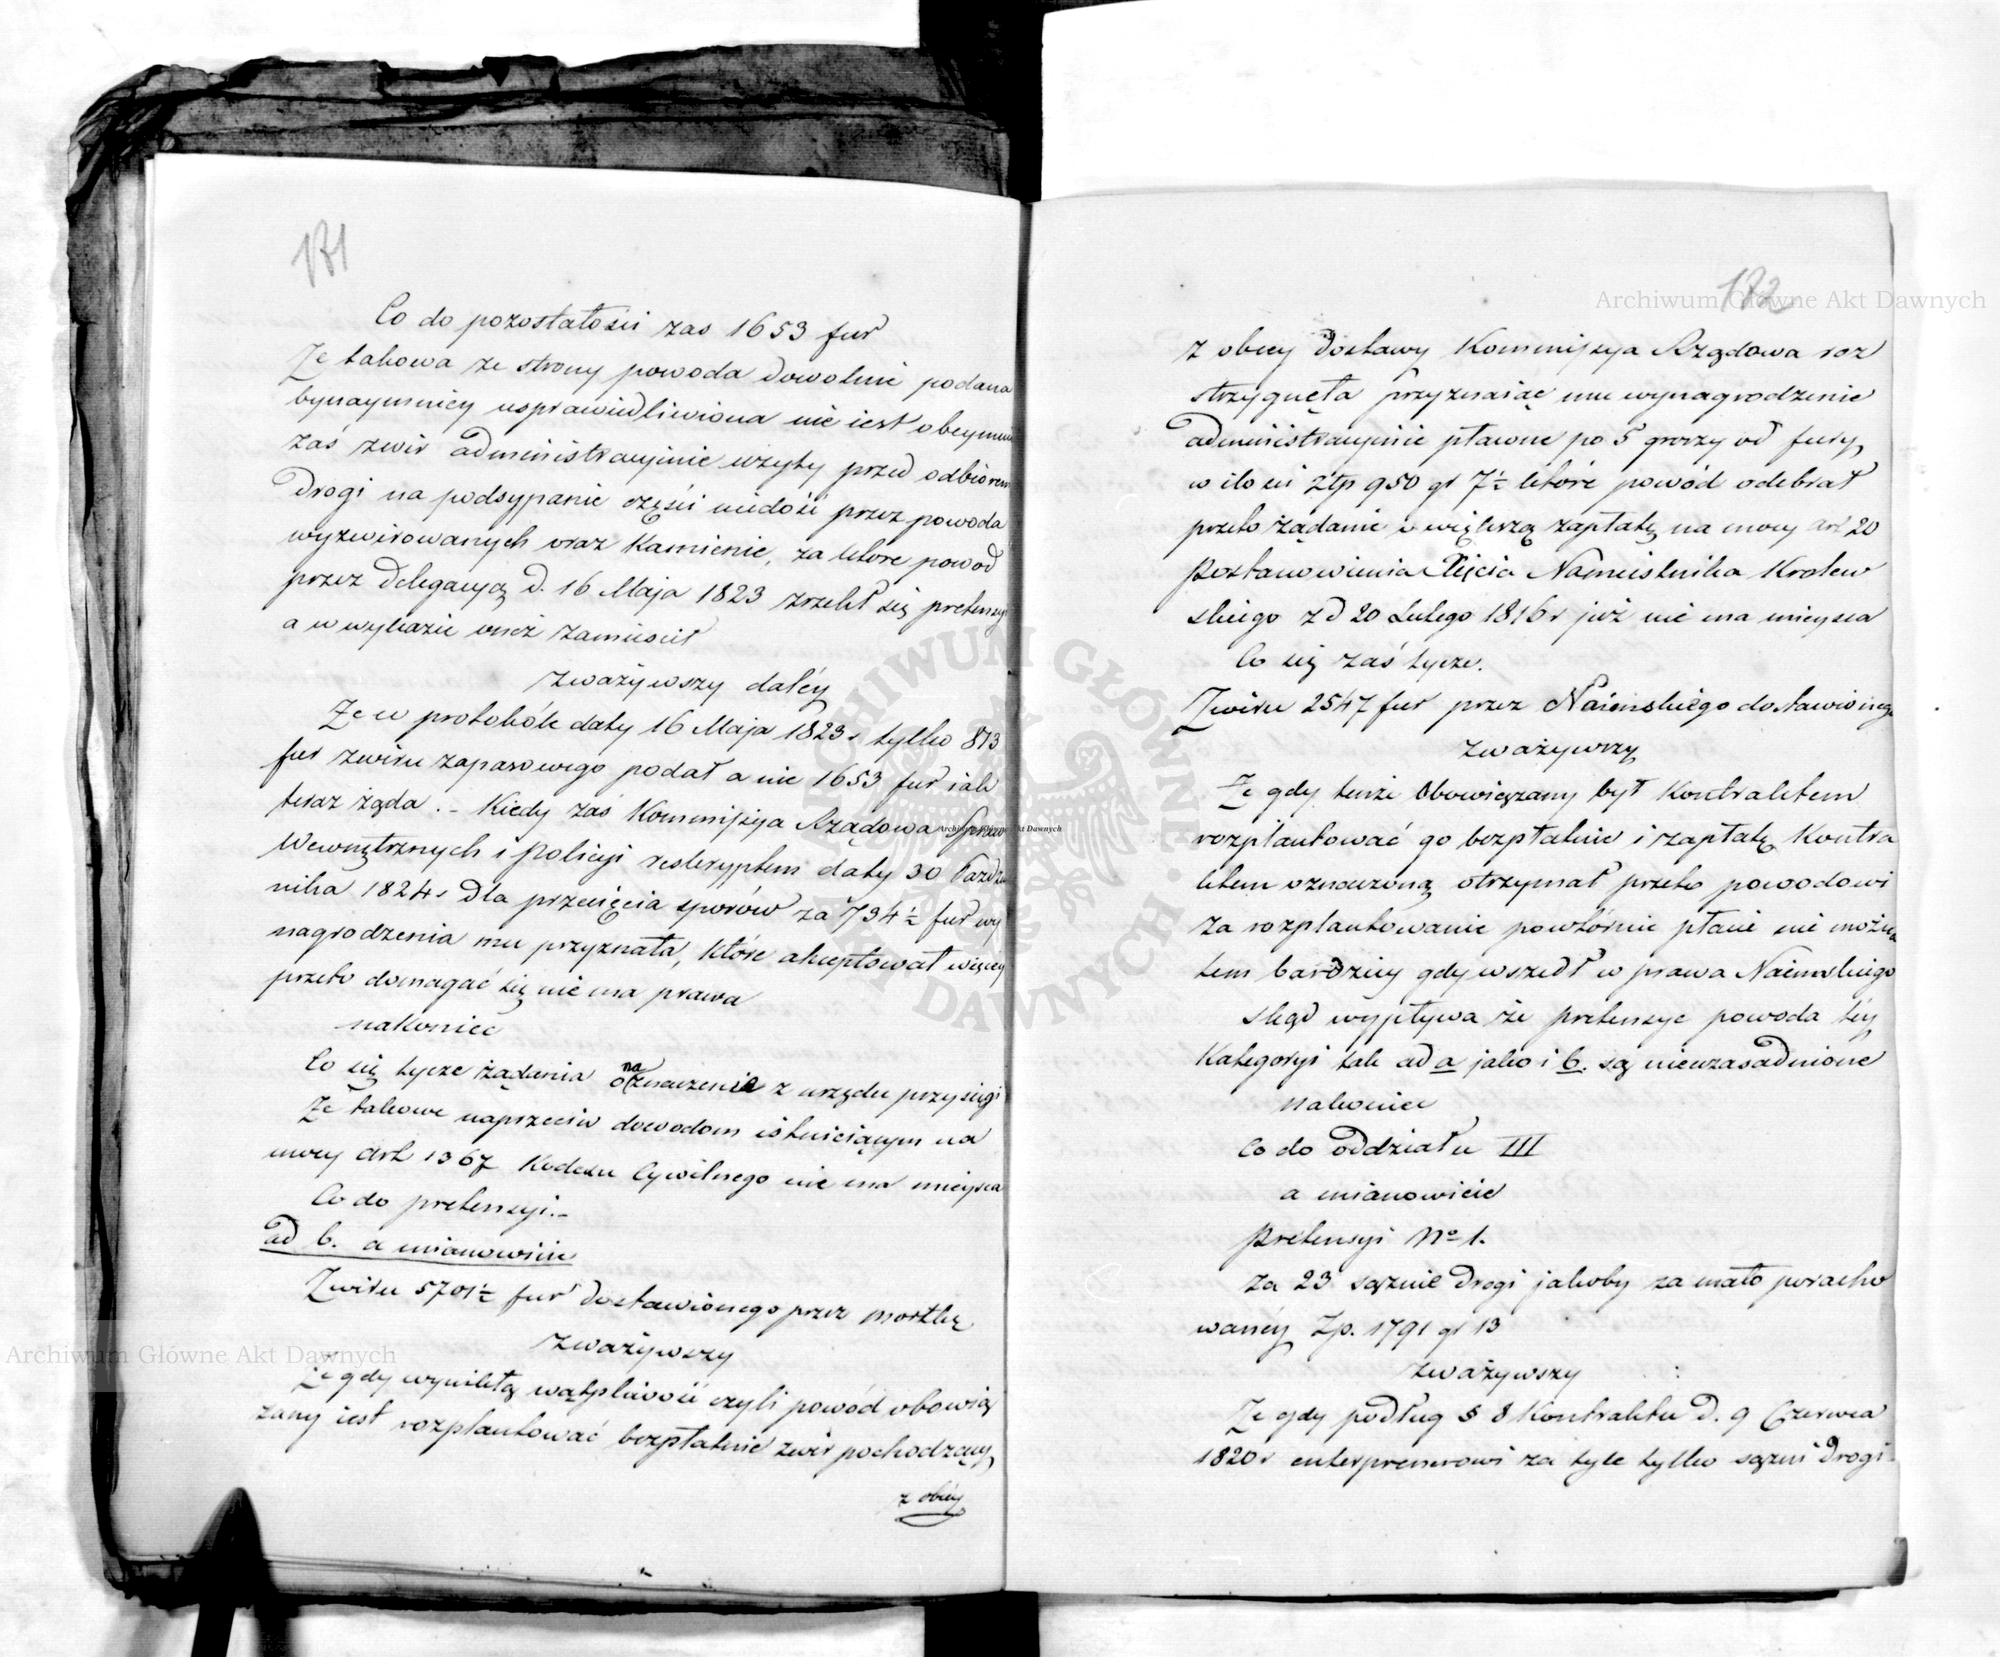 171
Co do pozostałości zas 1653 fur
Ze takowa ze strony powoda dowolnie podana
bynaymniey usprawiedliwiona nie iest obeymuie
zaś zwir administracyinie wzyty przed odbiorem
Drogi na podsypanie części niedość przez powoda
wyzwirowanych oraz Kamienie, za które powod
przez Delegacyą d. 16 Maja 1823 zrzekł się pretensyi
a w wykazie onéż zamieścił
zważywszy daléy
Ze w protokóle daty 16 Maja 1823 r tylko 873
fur zwiru zapasowego podał a nie 1653 fur iak
teraz żąda. – Kiedy zaś Kommissya Rządowa Spraw
Wewnętrznych i Policyi reskryptem daty 30 Paździer
nika 1824 r Dla przecięcia sporów za 734 ½ fur wy
nagrodzenia mu przyznała, które akceptował więcey
przeto domagać się nie ma prawa
nakoniec
Co się tycze żądania naznaczenia z urzędu przysięgi
Ze takowe naprzeciw dowodom istnieiącym na
mocy Art 1367 Kodexu Cywilnego nie ma mieysca
Co do pretensyi. –
ad b. a mianowicie
Zwiru 5701 ½ fur dostawionego przez
zważywszy
Ze gdy wynikłą wątpliwość czyli powód obowią
zany iest rozplantować bezpłatnie zwir pochodzący,
z obcéy
172
z obcey Dostawy Kommissya Rządowa roz
strzygnęła przyznaiąc mu wynagrodzenie
administracyinie pławne po 5 groszy od fury,
w ilości Złp 950 gr 7 ½ które powód odebrał
przeto żądanie o większą zapłatę na mocy art 20
Postanowienia Xięcia Namiestnika Krolew
skiego z d 20 Lutego 1816 r już nie ma mieysca
Co się zaś tycze.
Zwiru 2547 fur przez Naimskiégo dostawionego
zważywszy
Ze gdy tenże Obowiązany był Kontraktem
rozplantować go bezpłatnie i zapłatę Kontra
ktem oznaczoną otrzymał przeto powodowi
za rozplantowanie powtórnie płacić nie można
tem bardziey gdy wszedł w prawa Naimskiego
skąd wypływa że pretensye powoda téy
Kategoryi tak ad a jako i b. są nieuzasadnione
nakoniec
Co do oddziału III
a mianowicie
Pretensyi No 1.
Za 23 sążnie Drogi jakoby za mało poracho
wanéy Zp. 1791 gr 13
zważywszy
Ze gdy podług § 8 Kontraktu D. 9 Czerwca
1820 r enterprenerowi za tyle tylko sążni Drogi
Archiwum Główne Akt Dawnych
Archiwum Główne Akt Dawnych
Archiwum Główne Akt Dawnych
ARCHIWUM GŁÓWNE AKT DAWNYCH